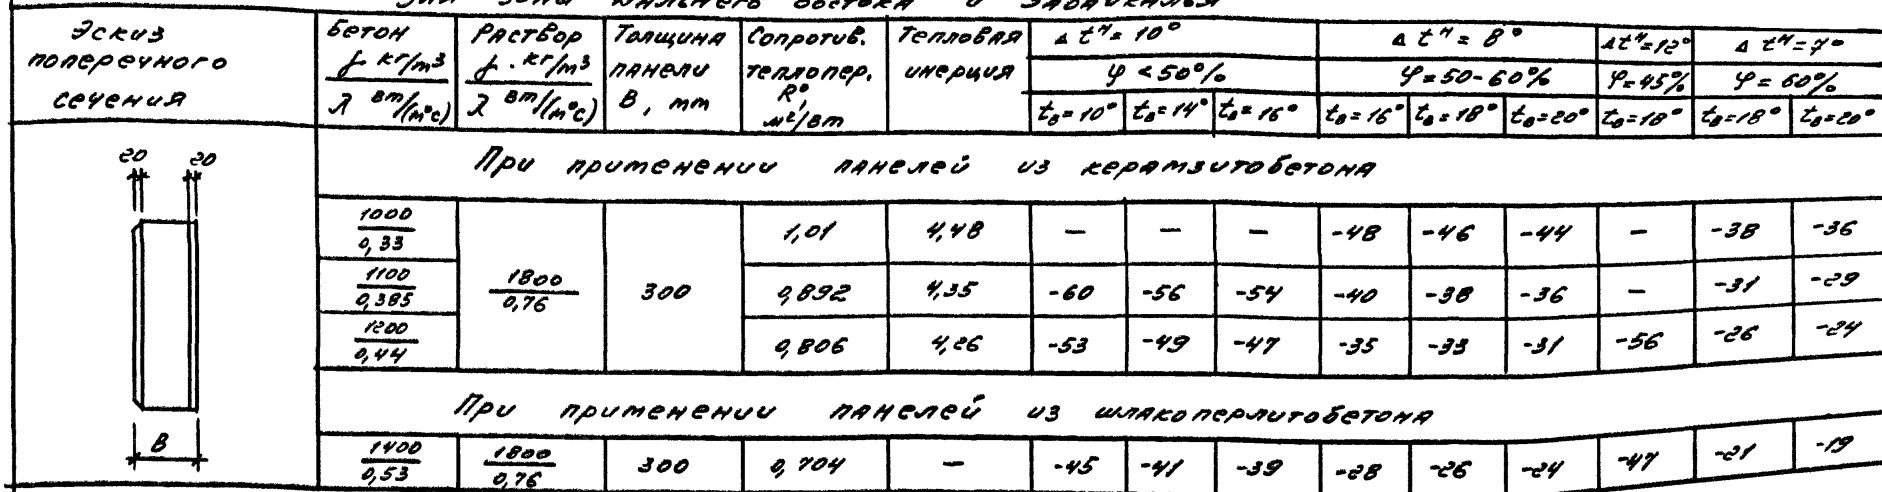 Для зоны Дальнего Востока и Забайкалья
Эскиз поперечного сечения
Бетон γ кг/м³ λ Вт/(м°с)
Раствор γ. кг/м³ λ Вт/(м°с)
Толщина панели В, мм
Сопротив. теплопер. R°, м²/Вт
Тепловая инерция
Δ tᴴ = 10° Δ tᴴ = 8° Δtᴴ=12° Δ tᴴ=7°
φ < 50% φ = 50-60% φ=45% φ = 60%
tв=10° tв=14° tв=16° tв=16° tв=18° tв=20° tв=18° tв=18° tв=20°
20 20
В
При применении панелей из керамзитобетона
1000/0,33 1800/0,76 300 1,01 4,48 – – – -48 -46 -44 – -38 -36
1100/0,385 0,892 4,35 -60 -56 -54 -40 -38 -36 – -31 -29
1200/0,44 0,806 4,26 -53 -49 -47 -35 -33 -31 -56 -26 -24
При применении панелей из шлакоперлитобетона
1400/0,53 1800/0,76 300 0,704 – -45 -41 -39 -28 -26 -24 -47 -21 -19